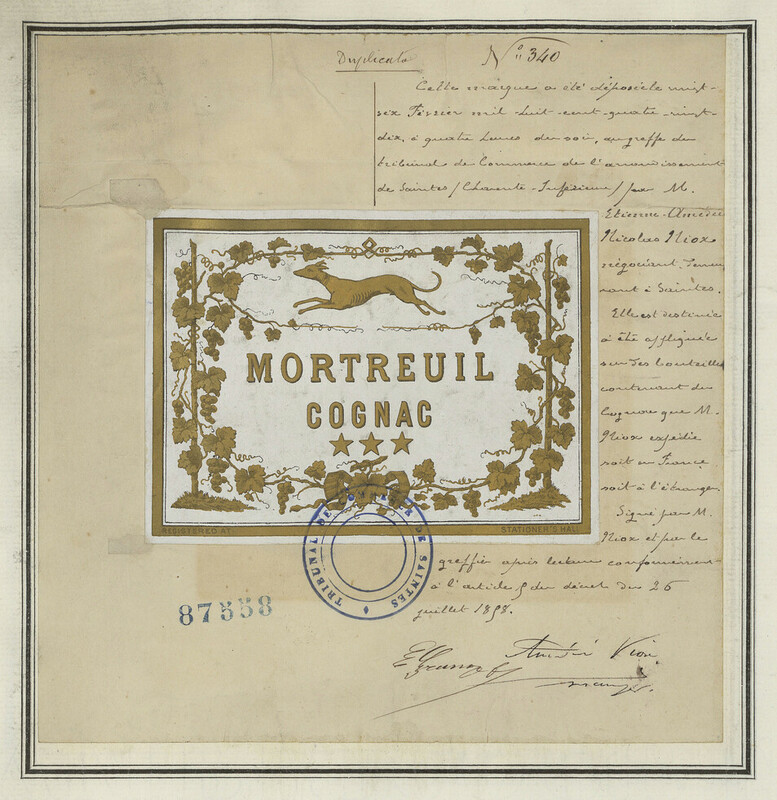 Duplicata
N° 340
Cette marque a été déposée le vingt-
six Février mil huit-cent-quatre-vingt-
dix, à quatre heures du soir, au greffe du
tribunal de Commerce de l'arrondissement
de Saintes (Charente-Inférieure) par M.
Etienne-Amédée
Nicolas Niox
négociant, demeu-
rant à Saintes.
Elle est destinée
à être appliquée
sur des bouteilles
contenant du
Cognac que M.
Niox expédie
soit en France
soit à l'étranger.
Signé par M.
Niox et par le
greffier après lecture conformément
à l'article 5 du décret du 26
juillet 1858.
MORTREUIL
COGNAC
REGISTERED AT
STATIONER'S HALL
TRIBUNAL DE COMMERCE DE SAINTES
87558